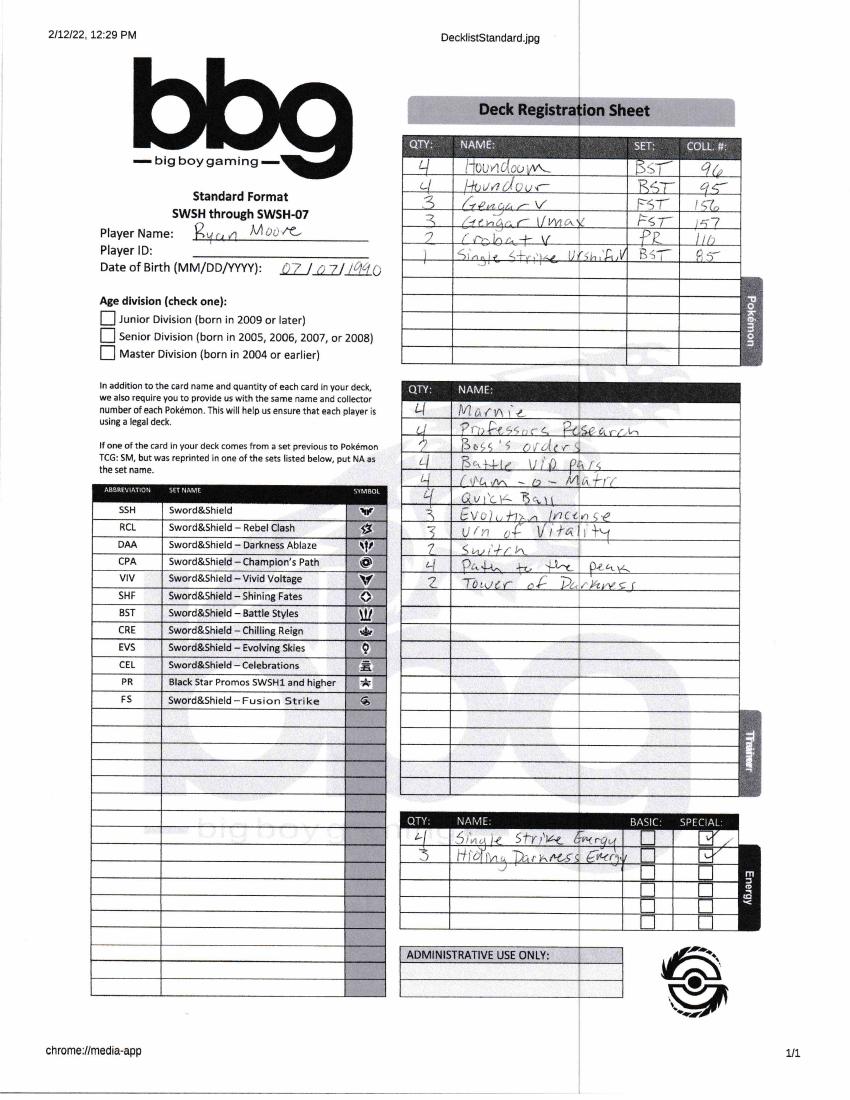 2/12/22, 12:29 PM
DecklistStandard.jpg
bbg
big boy gaming
Standard Format
SWSH through SWSH-07
Player Name: Ryan Moore
Player ID:
Date of Birth (MM/DD/YYYY): 07/07/1990
Age division (check one):
Junior Division (born in 2009 or later)
Senior Division (born in 2005, 2006, 2007, or 2008)
Master Division (born in 2004 or earlier)
In addition to the card name and quantity of each card in your deck,
we also require you to provide us with the same name and collector
number of each Pokémon. This will help us ensure that each player is
using a legal deck.
If one of the card in your deck comes from a set previous to Pokémon
TCG: SM, but was reprinted in one of the sets listed below, put NA as
the set name.
ABBREVIATION SET NAME SYMBOL
SSH Sword&Shield
RCL Sword&Shield – Rebel Clash
DAA Sword&Shield – Darkness Ablaze
CPA Sword&Shield – Champion's Path
VIV Sword&Shield – Vivid Voltage
SHF Sword&Shield – Shining Fates
BST Sword&Shield – Battle Styles
CRE Sword&Shield – Chilling Reign
EVS Sword&Shield – Evolving Skies
CEL Sword&Shield – Celebrations
PR Black Star Promos SWSH1 and higher
FS Sword&Shield – Fusion Strike
big boy g
Deck Registration Sheet
QTY: NAME: SET: COLL. #:
4 Houndoom BST 96
4 Houndour BST 95
3 Gengar V FST 156
3 Gengar Vmax FST 157
2 Crobat V PR 110
1 Single Strike Urshifu V BST 85
Pokémon
QTY: NAME:
4 Marnie
4 Professors Research
2 Boss's orders
4 Battle VIP pass
4 Cram-o-Matic
4 Quick Ball
3 Evolution Incense
3 Urn of Vitality
2 Switch
4 Path to the peak
2 Tower of Darkness
Trainer
QTY: NAME: BASIC: SPECIAL:
4 Single Strike Energy
3 Hiding Darkness Energy
Energy
ADMINISTRATIVE USE ONLY:
chrome://media-app
1/1